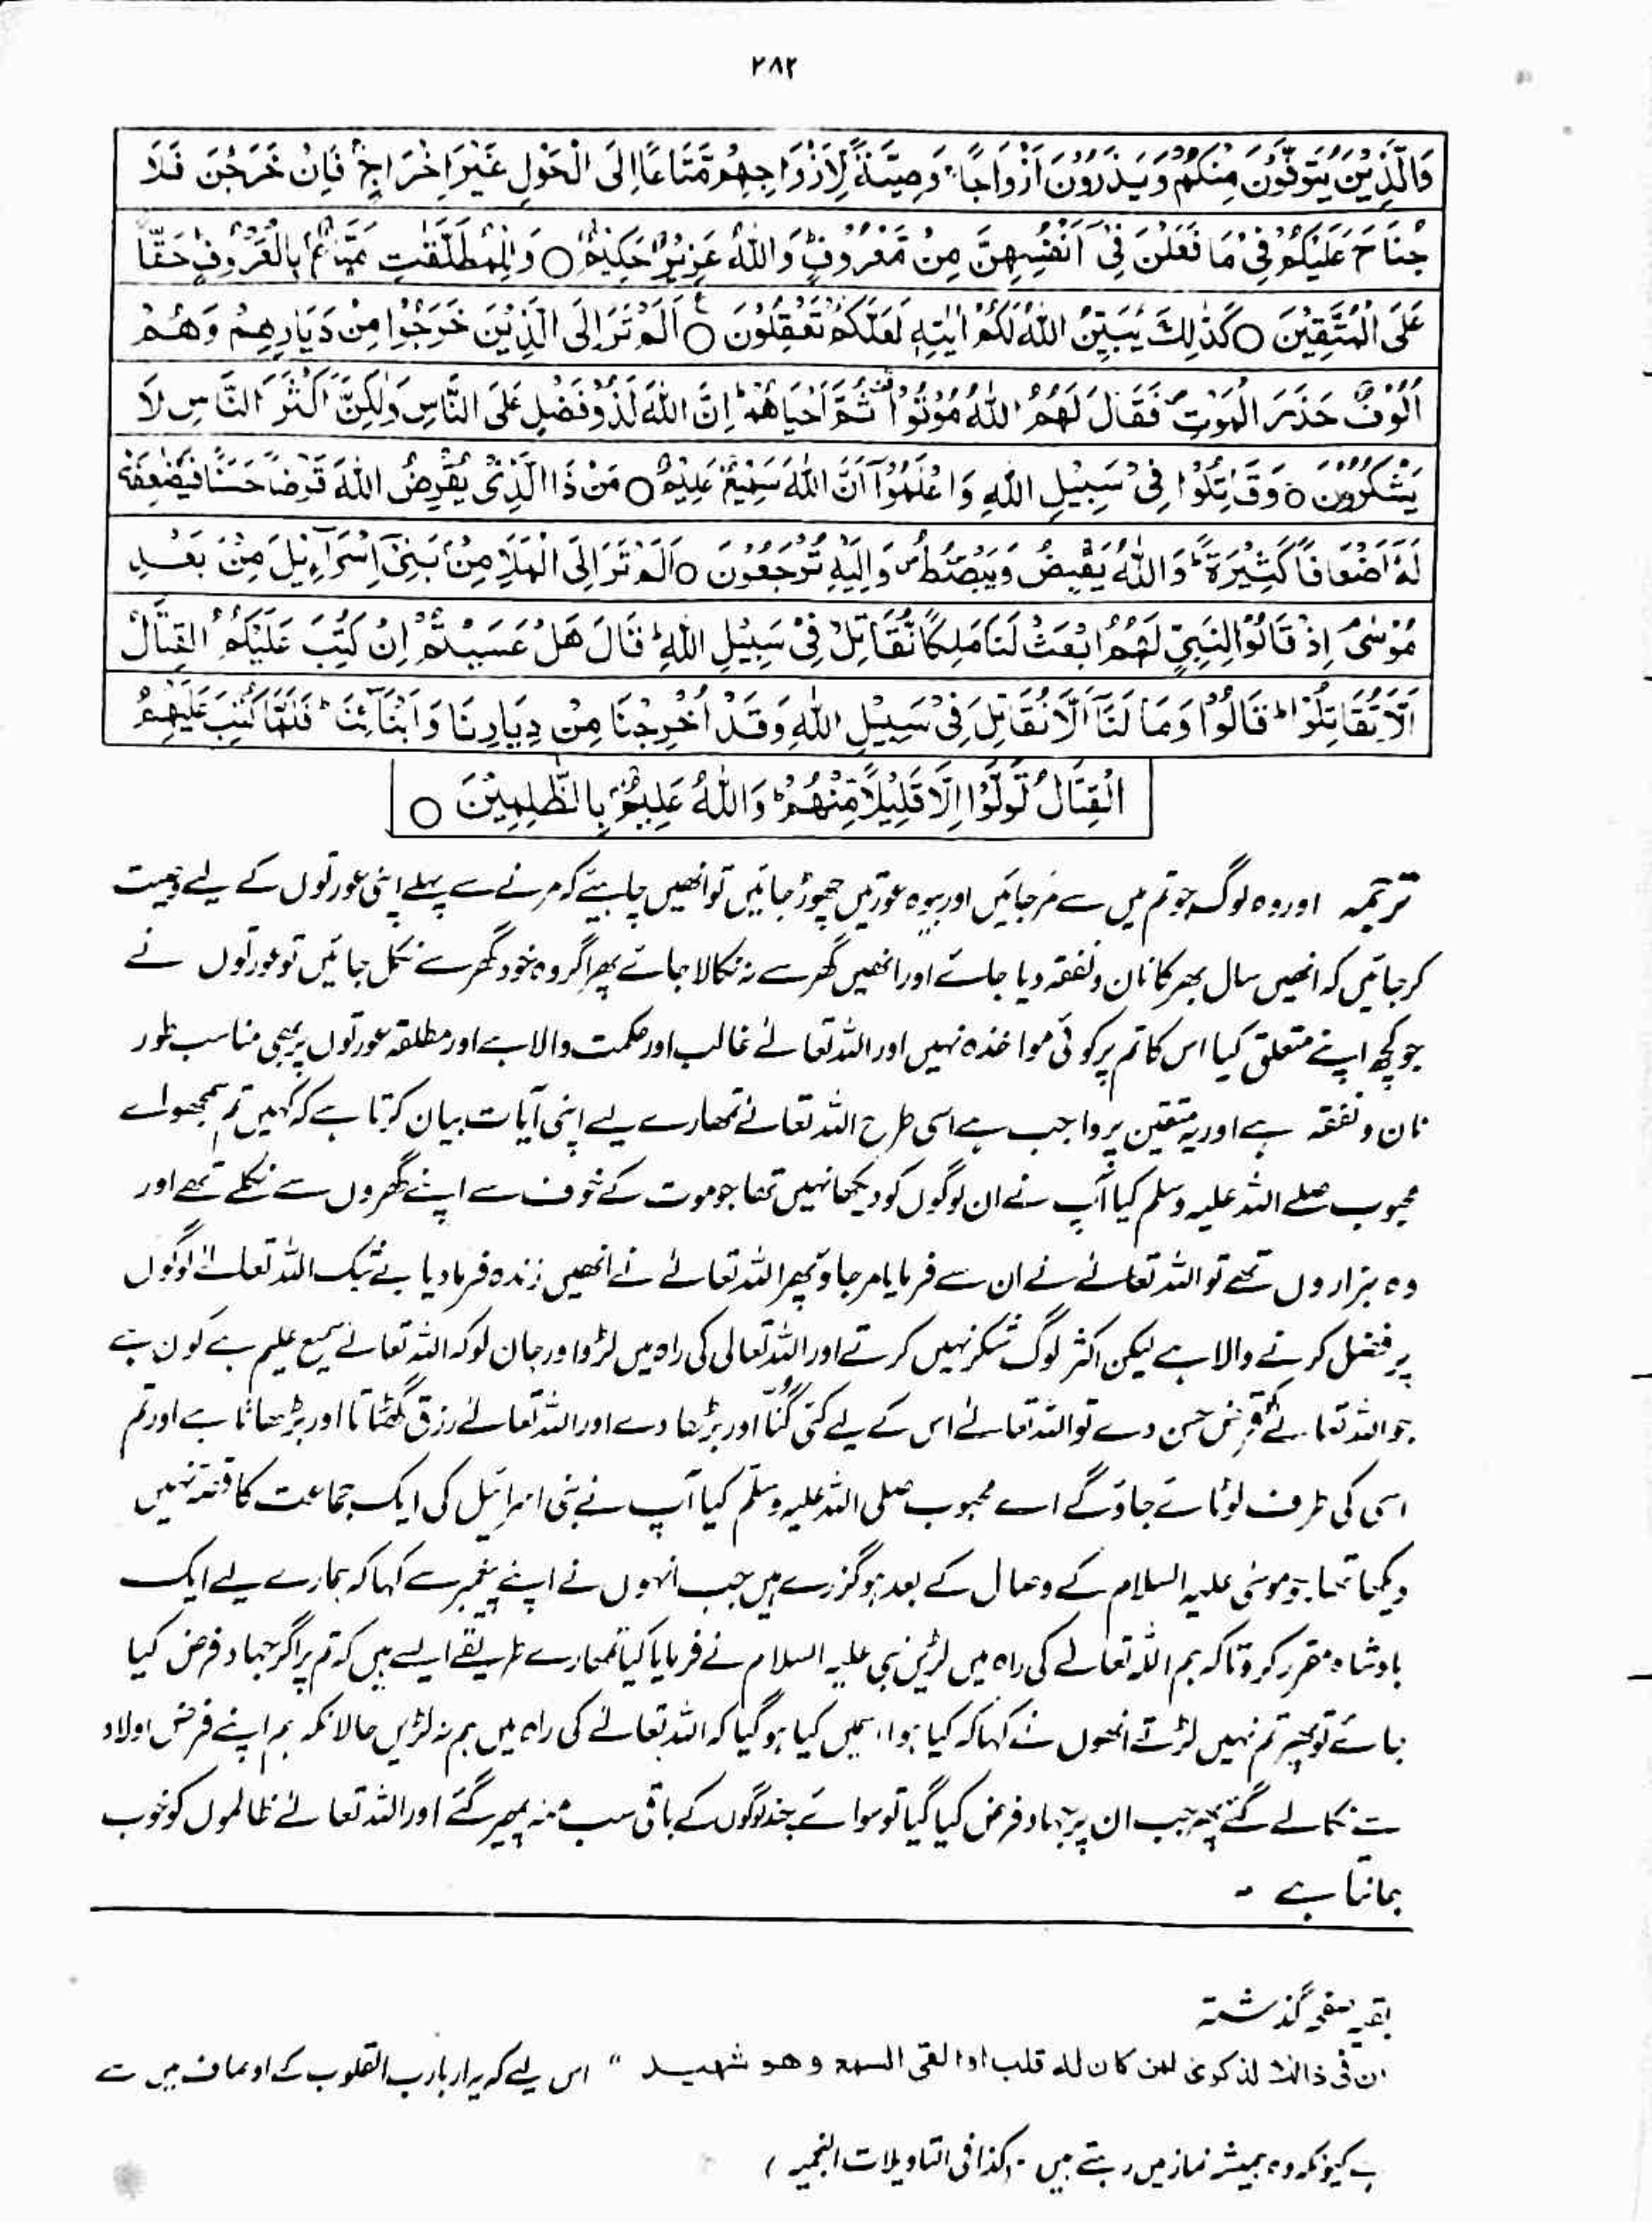 ۲۸۲
وَالَّذِيْنَ يُتَوَفَّوْنَ مِنْكُمْ وَيَذَرُوْنَ اَزْوَاجًا ۖ وَّصِيَّةً لِّاَزْوَاجِهِمْ مَّتَاعًا اِلَى الْحَوْلِ غَيْرَ اِخْرَاجٍ ۚ فَاِنْ خَرَجْنَ فَلَا
جُنَاحَ عَلَيْكُمْ فِىْ مَا فَعَلْنَ فِىْٓ اَنْفُسِهِنَّ مِنْ مَّعْرُوْفٍ ؕ وَاللّٰهُ عَزِيْزٌ حَكِيْمٌ ○ وَلِلْمُطَلَّقٰتِ مَتَاعٌۢ بِالْمَعْرُوْفِ ؕ حَقًّا
عَلَى الْمُتَّقِيْنَ ○ كَذٰلِكَ يُبَيِّنُ اللّٰهُ لَكُمْ اٰيٰتِهٖ لَعَلَّكُمْ تَعْقِلُوْنَ ○ اَلَمْ تَرَ اِلَى الَّذِيْنَ خَرَجُوْا مِنْ دِيَارِهِمْ وَهُمْ
اُلُوْفٌ حَذَرَ الْمَوْتِ ۪ فَقَالَ لَهُمُ اللّٰهُ مُوْتُوْا ۫ ثُمَّ اَحْيَاهُمْ ؕ اِنَّ اللّٰهَ لَذُوْ فَضْلٍ عَلَى النَّاسِ وَلٰكِنَّ اَكْثَرَ النَّاسِ لَا
يَشْكُرُوْنَ ○ وَقَاتِلُوْا فِىْ سَبِيْلِ اللّٰهِ وَاعْلَمُوْٓا اَنَّ اللّٰهَ سَمِيْعٌ عَلِيْمٌ ○ مَنْ ذَا الَّذِىْ يُقْرِضُ اللّٰهَ قَرْضًا حَسَنًا فَيُضٰعِفَهٗ
لَهٗٓ اَضْعَافًا كَثِيْرَةً ؕ وَاللّٰهُ يَقْبِضُ وَيَبْصُۜطُ ۪ وَاِلَيْهِ تُرْجَعُوْنَ ○ اَلَمْ تَرَ اِلَى الْمَلَاِ مِنْۢ بَنِىْٓ اِسْرَآءِيْلَ مِنْۢ بَعْدِ
مُوْسٰى ۘ اِذْ قَالُوْا لِنَبِىٍّ لَّهُمُ ابْعَثْ لَنَا مَلِكًا نُّقَاتِلْ فِىْ سَبِيْلِ اللّٰهِ ؕ قَالَ هَلْ عَسَيْتُمْ اِنْ كُتِبَ عَلَيْكُمُ الْقِتَالُ
اَلَّا تُقَاتِلُوْا ؕ قَالُوْا وَمَا لَنَآ اَلَّا نُقَاتِلَ فِىْ سَبِيْلِ اللّٰهِ وَقَدْ اُخْرِجْنَا مِنْ دِيَارِنَا وَاَبْنَآئِنَا ؕ فَلَمَّا كُتِبَ عَلَيْهِمُ
الْقِتَالُ تَوَلَّوْا اِلَّا قَلِيْلًا مِّنْهُمْ ؕ وَاللّٰهُ عَلِيْمٌۢ بِالظّٰلِمِيْنَ ○
ترجمہ اور وہ لوگ جو تم میں سے مرجائیں اور بیوہ عورتیں چھوڑ جائیں تو انھیں چاہیئے کہ مرنے سے پہلے اپنی عورتوں کے لیے وصیت
کر جائیں کہ انھیں سال بھر کا نان و نفقہ دیا جائے اور انھیں گھر سے نہ نکالا جائے پھر اگر وہ خود گھر سے نکل جائیں تو عورتوں نے
جو کچھ اپنے متعلق کیا اس کا تم پر کوئی مواخذہ نہیں اور اللہ تعالے غالب اور حکمت والا ہے اور مطلقہ عورتوں پر بھی مناسب طور
نان و نفقہ ہے اور یہ متقین پر واجب ہے اسی طرح اللہ تعالے تمھارے لیے اپنی آیات بیان کرتا ہے کہ کہیں تم سمجھو اے
محبوب صلے اللہ علیہ وسلم کیا آپ نے ان لوگوں کو دیکھا نہیں تھا جو موت کے خوف سے اپنے گھروں سے نکلے تھے اور
وہ ہزاروں تھے تو اللہ تعالے نے ان سے فرمایا مرجاؤ پھر اللہ تعالے نے انھیں زندہ فرما دیا بے شک اللہ تعالے لوگوں
پر فضل کرنے والا ہے لیکن اکثر لوگ شکر نہیں کرتے اور اللہ تعالی کی راہ میں لڑو اور جان لو کہ اللہ تعالے سمیع علیم ہے کون ہے
جو اللہ تعالے کو قرض حسن دے تو اللہ تعالے اس کے لیے کئی گُنا اور بڑھا دے اور اللہ تعالے رزق گھٹاتا اور بڑھاتا ہے اور تم
اسی کی طرف لوٹائے جاؤ گے اے محبوب صلی اللہ علیہ وسلم کیا آپ نے بنی اسرائیل کی ایک جماعت کا قصہ نہیں
دیکھا تھا جو موسٰی علیہ السلام کے وصال کے بعد ہو گزرے ہیں جب انہوں نے اپنے پیغمبر سے کہا کہ ہمارے لیے ایک
بادشاہ مقرر کرو تاکہ ہم اللہ تعالے کی راہ میں لڑیں نبی علیہ السلام نے فرمایا کیا تمھارے طریقے ایسے ہیں کہ تم پر اگر جہاد فرض کیا
جائے تو پھر تم نہیں لڑتے انھوں نے کہا کہ کیا ہوا ہمیں کیا ہو گیا کہ اللہ تعالے کی راہ میں ہم نہ لڑیں حالانکہ ہم اپنے اولاد
سے نکالے گئے پھر جب ان پر جہاد فرض کیا گیا تو سوائے چند لوگوں کے باقی سب منہ پھیر گئے اور اللہ تعالے ظالموں کو خوب
جانتا ہے ۔
بقیہ صفحہ گذشتہ
ان فی ذالک لذکری لمن کان لہ قلب او القی السمع وھو شھید " اس لیے کہ یہ ارباب القلوب کے اوصاف میں سے
ہے کیونکہ وہ ہمیشہ نماز میں رہتے ہیں ۔ (کذا فی التاویلات النجمیہ)